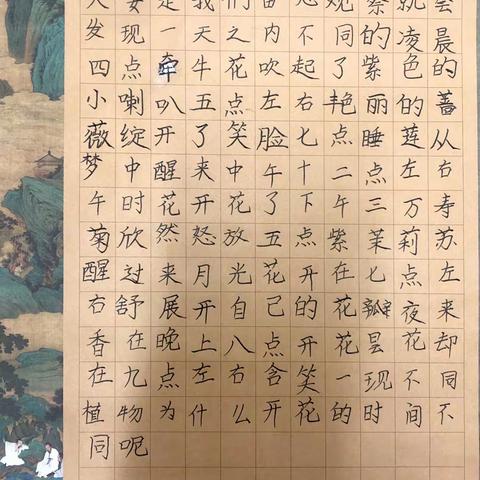 要是我们留心观察就会
发现一天之内不同的凌晨
四点牵牛花吹起了紫色的
小喇叭五点左右艳丽的蔷
薇绽开了笑脸七点睡莲从
梦中醒来中午十二点左右
午时花开花了下午三万寿
菊欣然怒放五点紫茉莉苏
醒过来月光花开在七点左
右舒展开自己的花瓣夜来
香在晚上八点开花昙花却
在九点左右含笑一现不同
植物为什么开花的时间不
同呢